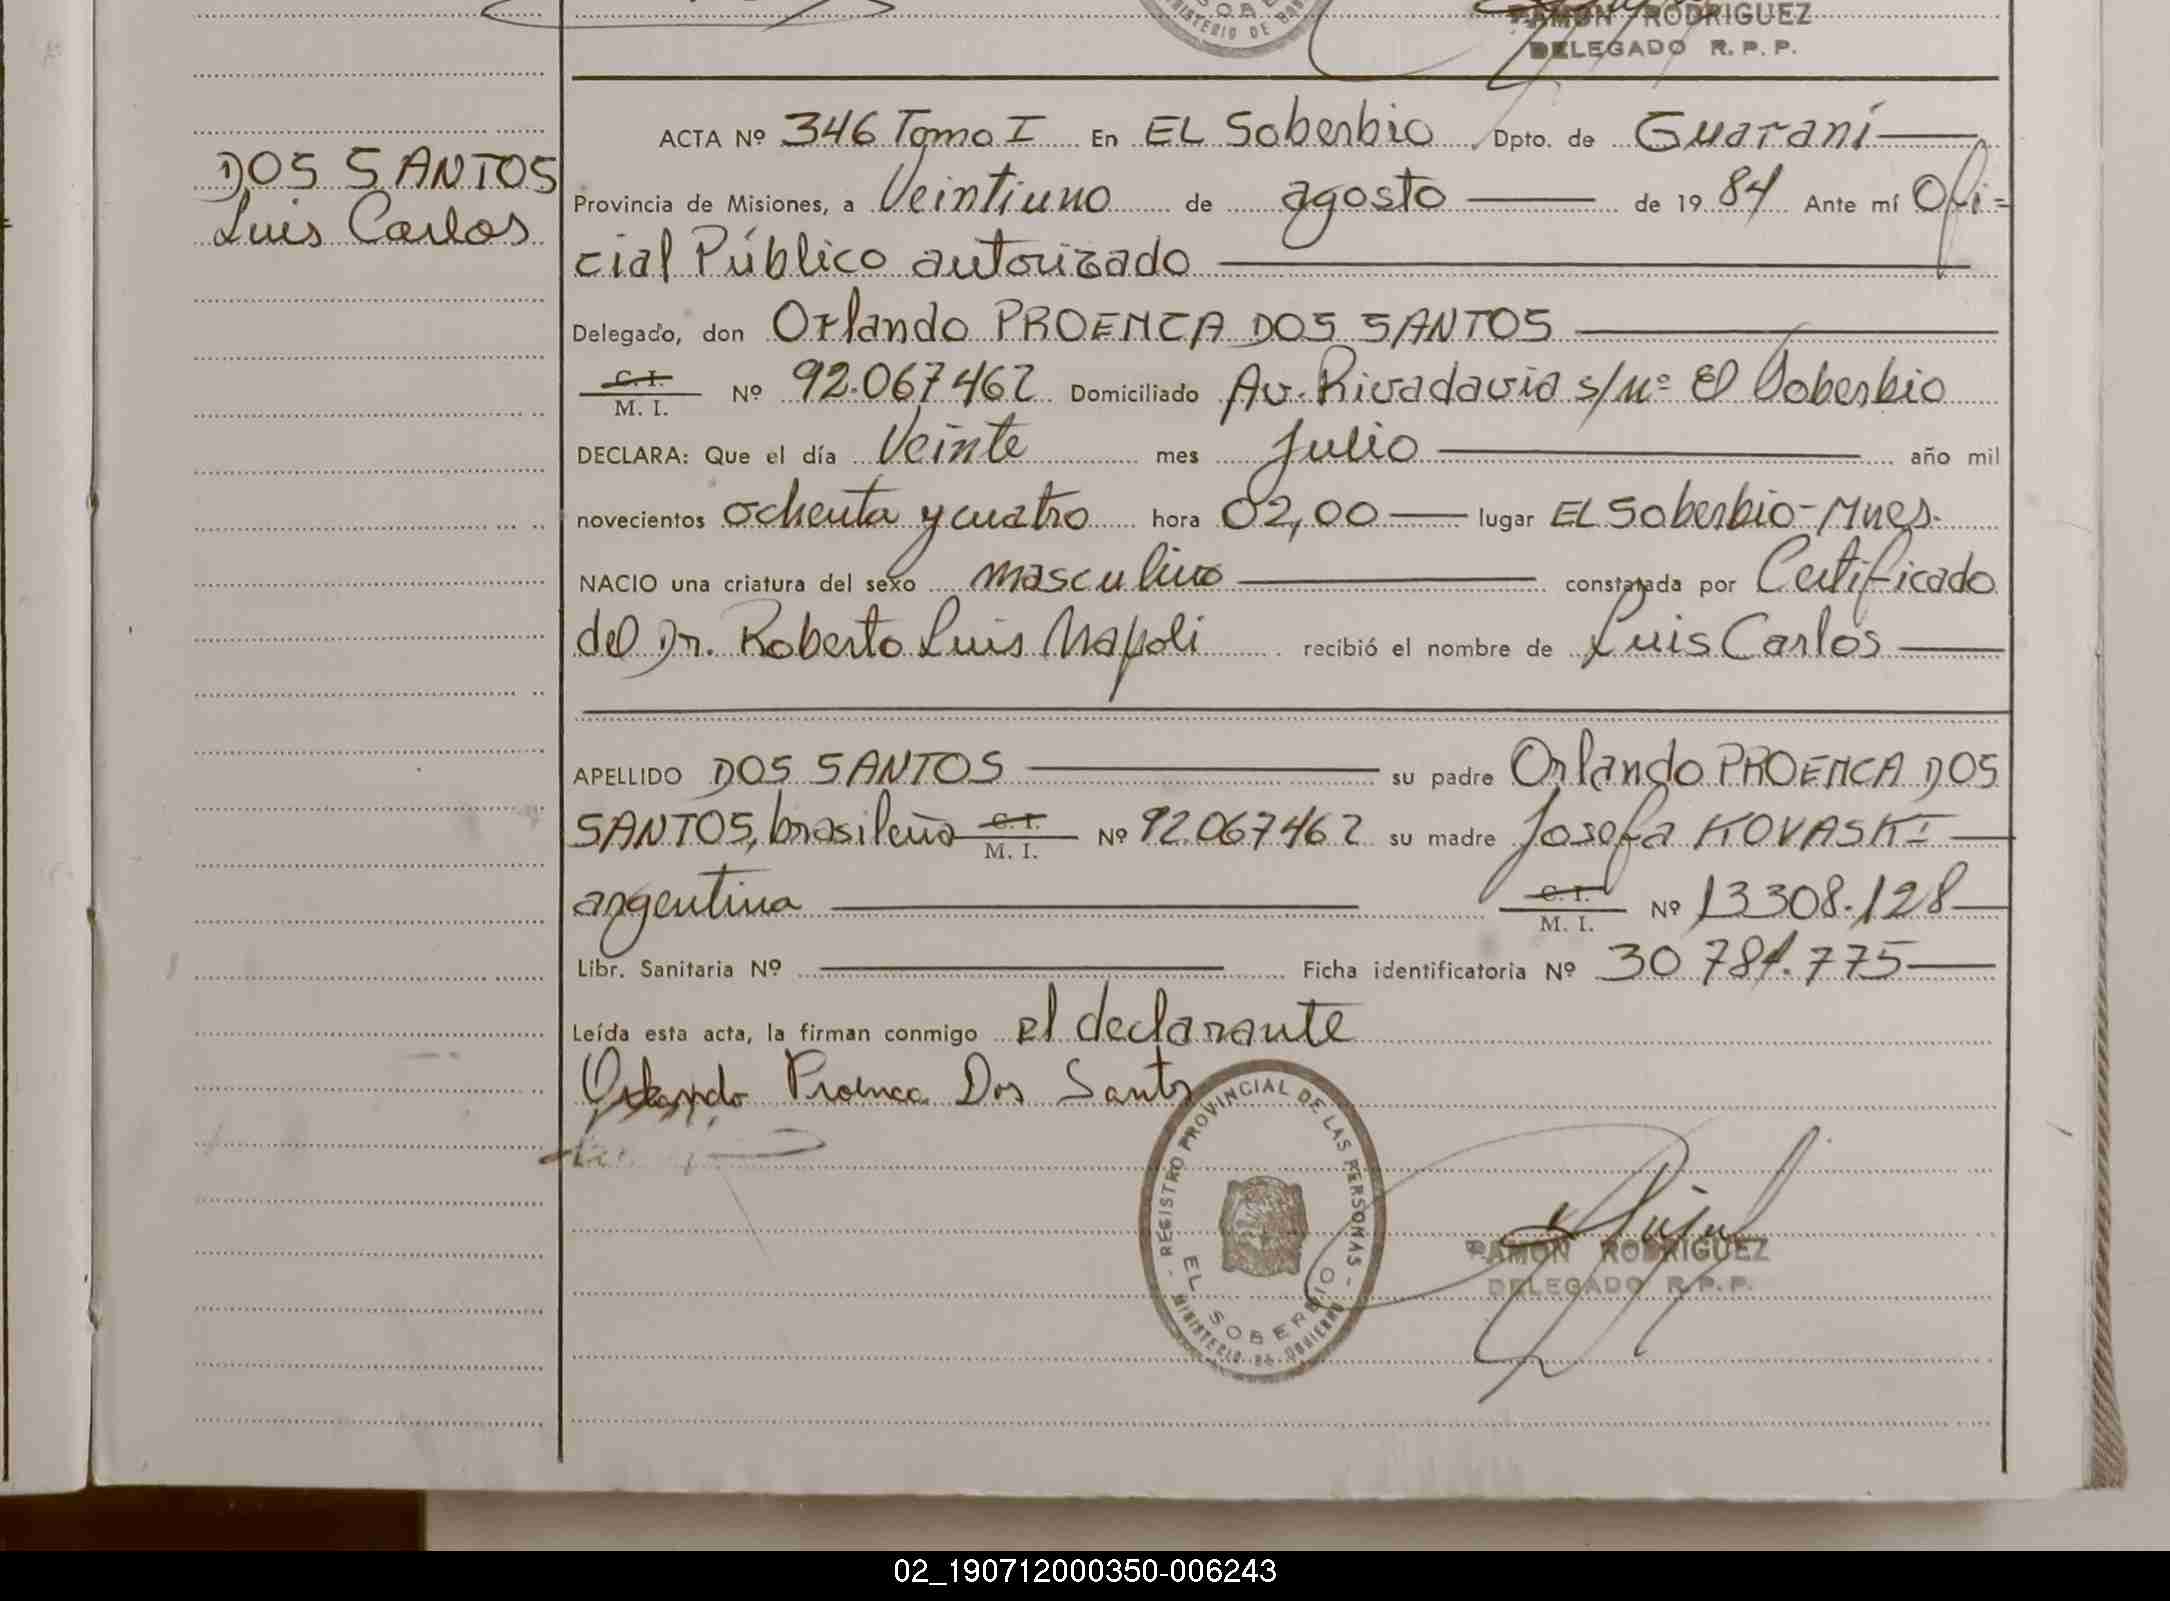 RAMON RODRIGUEZ
DELEGADO R. P. P.
DOS SANTOS
Luis Carlos
ACTA Nº 346 Tomo I En EL Soberbio Dpto. de Guaraní
Provincia de Misiones, a Veintiuno de agosto de 19 84 Ante mí Ofi=
cial Público autorizado
Delegado, don Orlando PROENCA DOS SANTOS
C. I. / M. I. Nº 92.067462 Domiciliado Av. Rivadavia s/nº El Soberbio
DECLARA: Que el día Veinte mes Julio año mil
novecientos ochenta y cuatro hora 02,00 lugar EL Soberbio-Mnes.
NACIO una criatura del sexo masculino constatada por Certificado
del Dr. Roberto Luis Napoli recibió el nombre de Luis Carlos
APELLIDO DOS SANTOS su padre Orlando PROENCA DOS
SANTOS, brasileño C. I. / M. I. Nº 92.067462 su madre Josefa KOVASKI
argentina C. I. / M. I. Nº 13308.128
Libr. Sanitaria Nº Ficha identificatoria Nº 30 781.775
Leída esta acta, la firman conmigo el declarante
Orlando Proenca Dos Santos
- REGISTRO PROVINCIAL DE LAS PERSONAS -
EL SOBERBIO
MINISTERIO DE GOBIERNO
RAMON RODRIGUEZ
DELEGADO R. P. P.
02_190712000350-006243